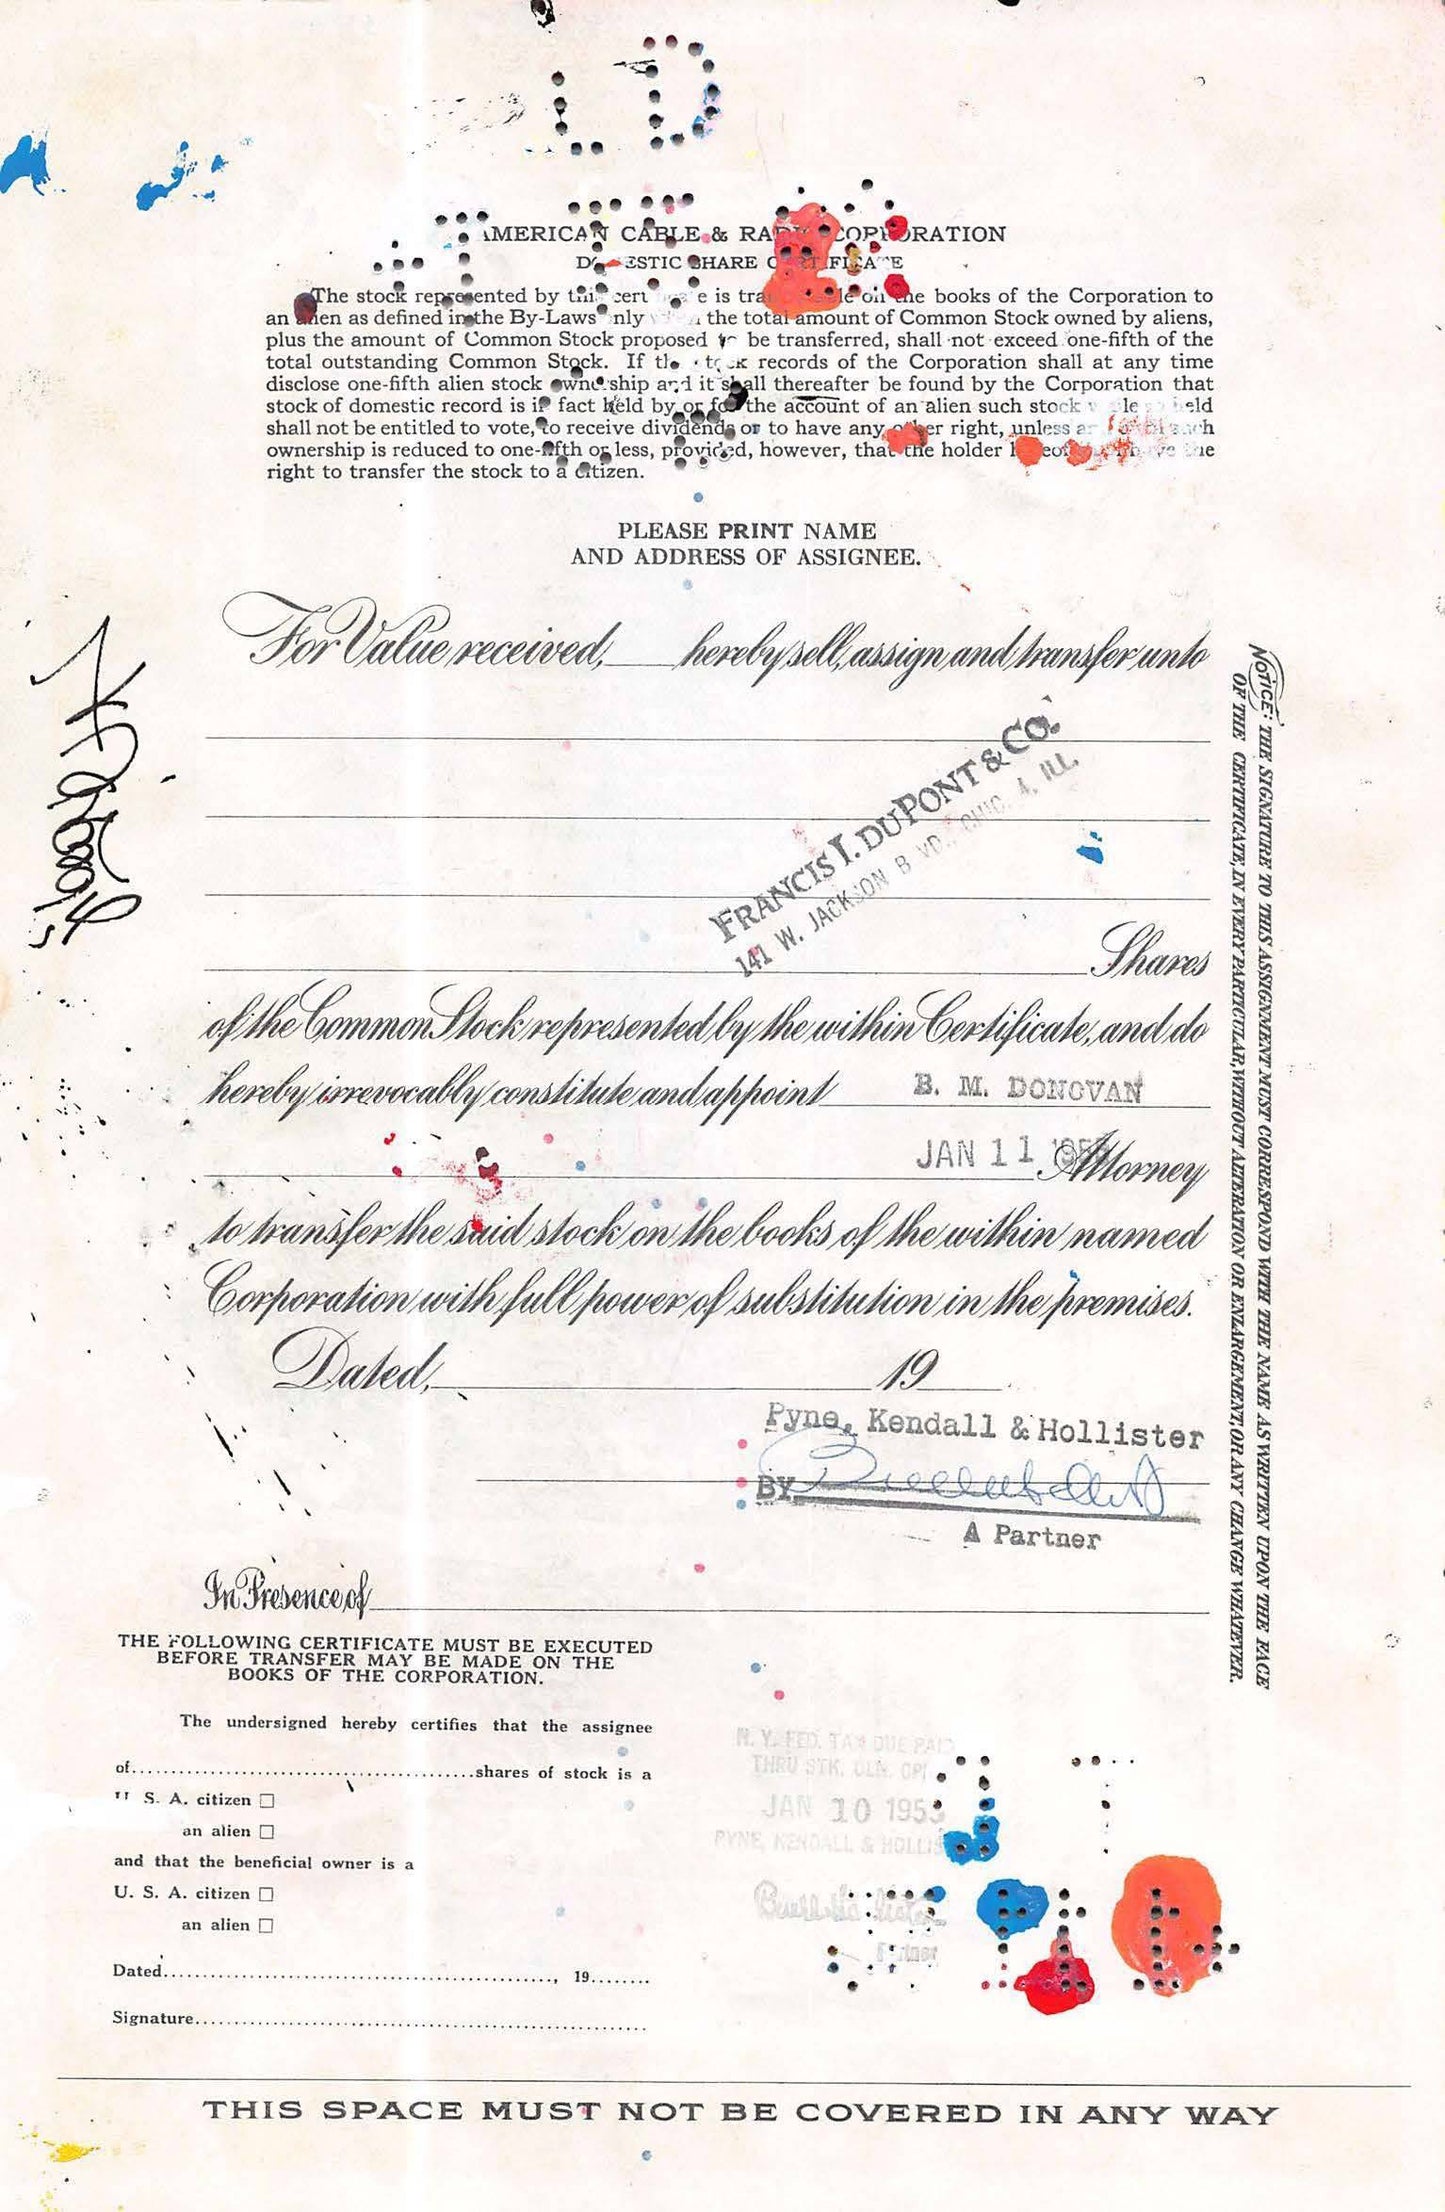 AMERICAN CABLE & RADIO CORPORATION
DOMESTIC SHARE CERTIFICATE
The stock represented by this certificate is transferable on the books of the Corporation to
an alien as defined in the By-Laws only when the total amount of Common Stock owned by aliens,
plus the amount of Common Stock proposed to be transferred, shall not exceed one-fifth of the
total outstanding Common Stock. If the stock records of the Corporation shall at any time
disclose one-fifth alien stock ownership and it shall thereafter be found by the Corporation that
stock of domestic record is in fact held by or for the account of an alien such stock while so held
shall not be entitled to vote, to receive dividends or to have any other right, unless such
ownership is reduced to one-fifth or less, provided, however, that the holder have the
right to transfer the stock to a citizen.
PLEASE PRINT NAME
AND ADDRESS OF ASSIGNEE.
For Value received, hereby sell, assign and transfer unto
FRANCIS I. DUPONT & CO.
141 W. JACKSON BLVD., CHIC. 4, ILL.
Shares
of the Common Stock represented by the within Certificate, and do
hereby irrevocably constitute and appoint B. M. DONOVAN
JAN 11 Attorney
to transfer the said stock on the books of the within named
Corporation with full power of substitution in the premises.
Dated, 19
Pyne, Kendall & Hollister
BY
A Partner
In Presence of
THE FOLLOWING CERTIFICATE MUST BE EXECUTED
BEFORE TRANSFER MAY BE MADE ON THE
BOOKS OF THE CORPORATION.
The undersigned hereby certifies that the assignee
of shares of stock is a
U. S. A. citizen □
an alien □
and that the beneficial owner is a
U. S. A. citizen □
an alien □
Dated, 19
Signature
N. Y. FED. TAX DUE PAID
THRU STK. CLR. CP
JAN 10 1953
PYNE, KENDALL & HOLLIS
Partner
NOTICE: THE SIGNATURE TO THIS ASSIGNMENT MUST CORRESPOND WITH THE NAME AS WRITTEN UPON THE FACE
OF THE CERTIFICATE, IN EVERY PARTICULAR, WITHOUT ALTERATION OR ENLARGEMENT, OR ANY CHANGE WHATEVER.
THIS SPACE MUST NOT BE COVERED IN ANY WAY